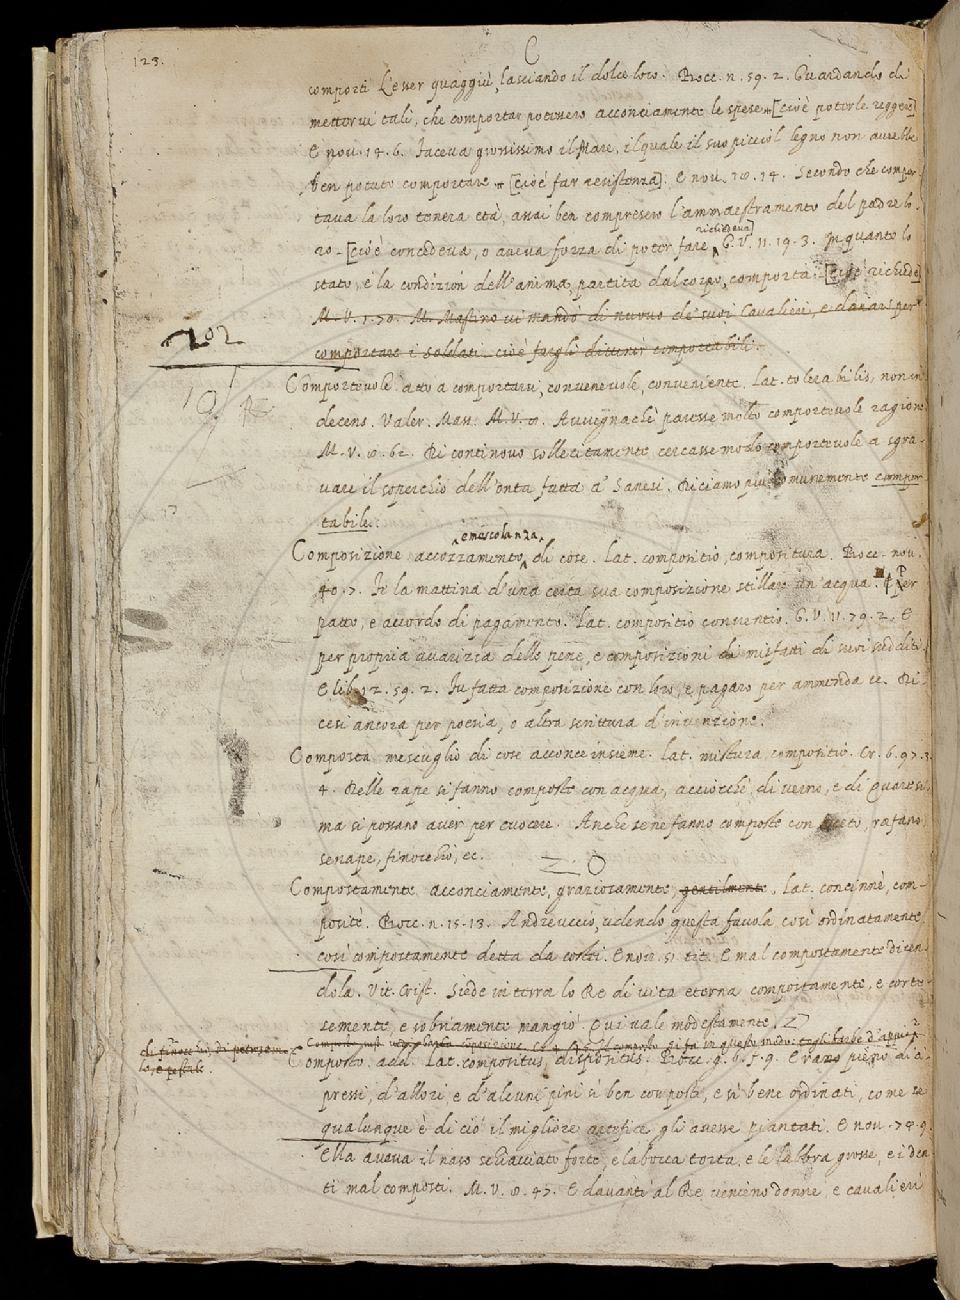 123.
C
comporti l'esser quaggiù, lasciando il dolce loco. Bocc. n. 59. 2. Guardando di
mettervi tali, che comportar potessero acconciamente le spese [cioè poterle reggere]
E nov. 14. 6. Faceva grossissimo il Mare, il quale il suo picciol legno non avrebbe
ben potuto comportare [cioè far resistenza]. E nov. 10. 14. Secondo che compor-
tava la loro tenera età, assai ben compresero l'ammaestramento del padre lo-
richiedeva]
ro. [cioè concedeva, o aveva forza di poter fare G.V. 11. 19. 3. In quanto lo
stato, e la condizion dell'anima, partita dal corpo, comporta. [cioè richiede]
M.V. 1. 70. M. Mastino vi mandò di nuovo de' suoi Cavalieri, e danari per
202
comportare i soldati. cioè fargli divenir comportabili.
Comportevole atto a comportarsi, convenevole, conveniente. Lat. tolerabilis, non in-
decens. Valer. Mass. M.V. 8. Avvegnachè paresse molto comportevole ragione
M.V. 8. 62. Di continovo sollecitamente cercasse modo comportevole a sgra-
vare il soperchio dell'onta fatta a' Sanesi. Diciamo più comunemente compor-
tabile.
e mescolanza
Composizione accozzamento, di cose. Lat. compositio, compositura. Bocc. nov.
40. 7. Fè la mattina d'una certa sua composizione stillare un'acqua. Per
patto, e accordo di pagamento. Lat. compositio conventio. G.V. 11. 79. 2. E
per propria avarizia delle pene, e composizioni di misfatti di suoi sudditi.
E lib. 12. 59. 2. Fu fatta composizione con loro, e pagaro per ammenda ec. Di-
cesi ancora per poesia, o altra scrittura d'invenzione.
Composta mescuglio di cose acconce insieme. Lat. mistura, compositio. Cr. 6. 97. 3.
4. Delle rape si fanno composte con acqua, acciocchè, di verno, e di Quaresi-
ma si possano aver per cuocere. Anche se ne fanno composte con aceto, rafano
senape, finocchio, ec.
Compostamente. acconciamente, graziosamente, gentilmente. Lat. concinnè, com-
positè. Bocc. n. 15. 13. Andreuccio, udendo questa favola così ordinatamente,
così compostamente detta da costei. E nov. 51. tit. E mal compostamente dicen-
dola. Vit. Crist. Siede in terra lo Re di vita eterna compostamente, e corte-
semente, e sobriamente mangiò. Qui vale modestamente.
di finocchio, di petrosemo-
lo, e pestale.
Composto. add. Lat. compositus, dispositus. Bocc. g. 6. f. 9. Erano pieno di ci-
pressi, d'allori, e d'alcuni pini sì ben composti, e sì bene ordinati, come se
qualunque è di ciò il migliore artefice gli avesse piantati. E nov. 74. 9.
Ella aveva il naso schiacciato forte, e la bocca torta, e le labbra grosse, e i den-
ti mal composti. M.V. 8. 47. E davanti al Re vencono donne, e cavalieri